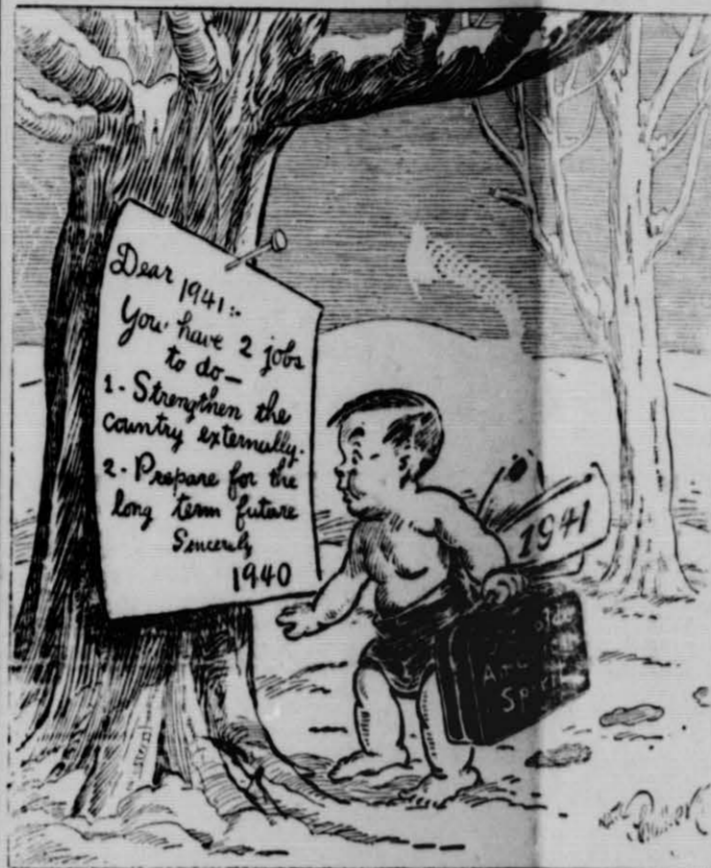 Dear 1941:-
You have 2 jobs
to do—
1 - Strengthen the
country externally.
2 - Prepare for the
long term future
Sincerely
1940
1941
Spirit